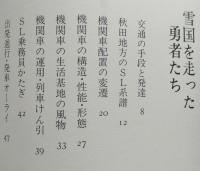 雪国を走った
勇者たち
交通の手段と発達 8
秋田地方のSL系譜 12
機関車配置の変遷 20
機関車の構造・性能・形態 27
機関車の生活基地の風物 33
機関車の運用・列車けん引 39
SL乗務員かたぎ 42
出発進行・発車オーライ 47